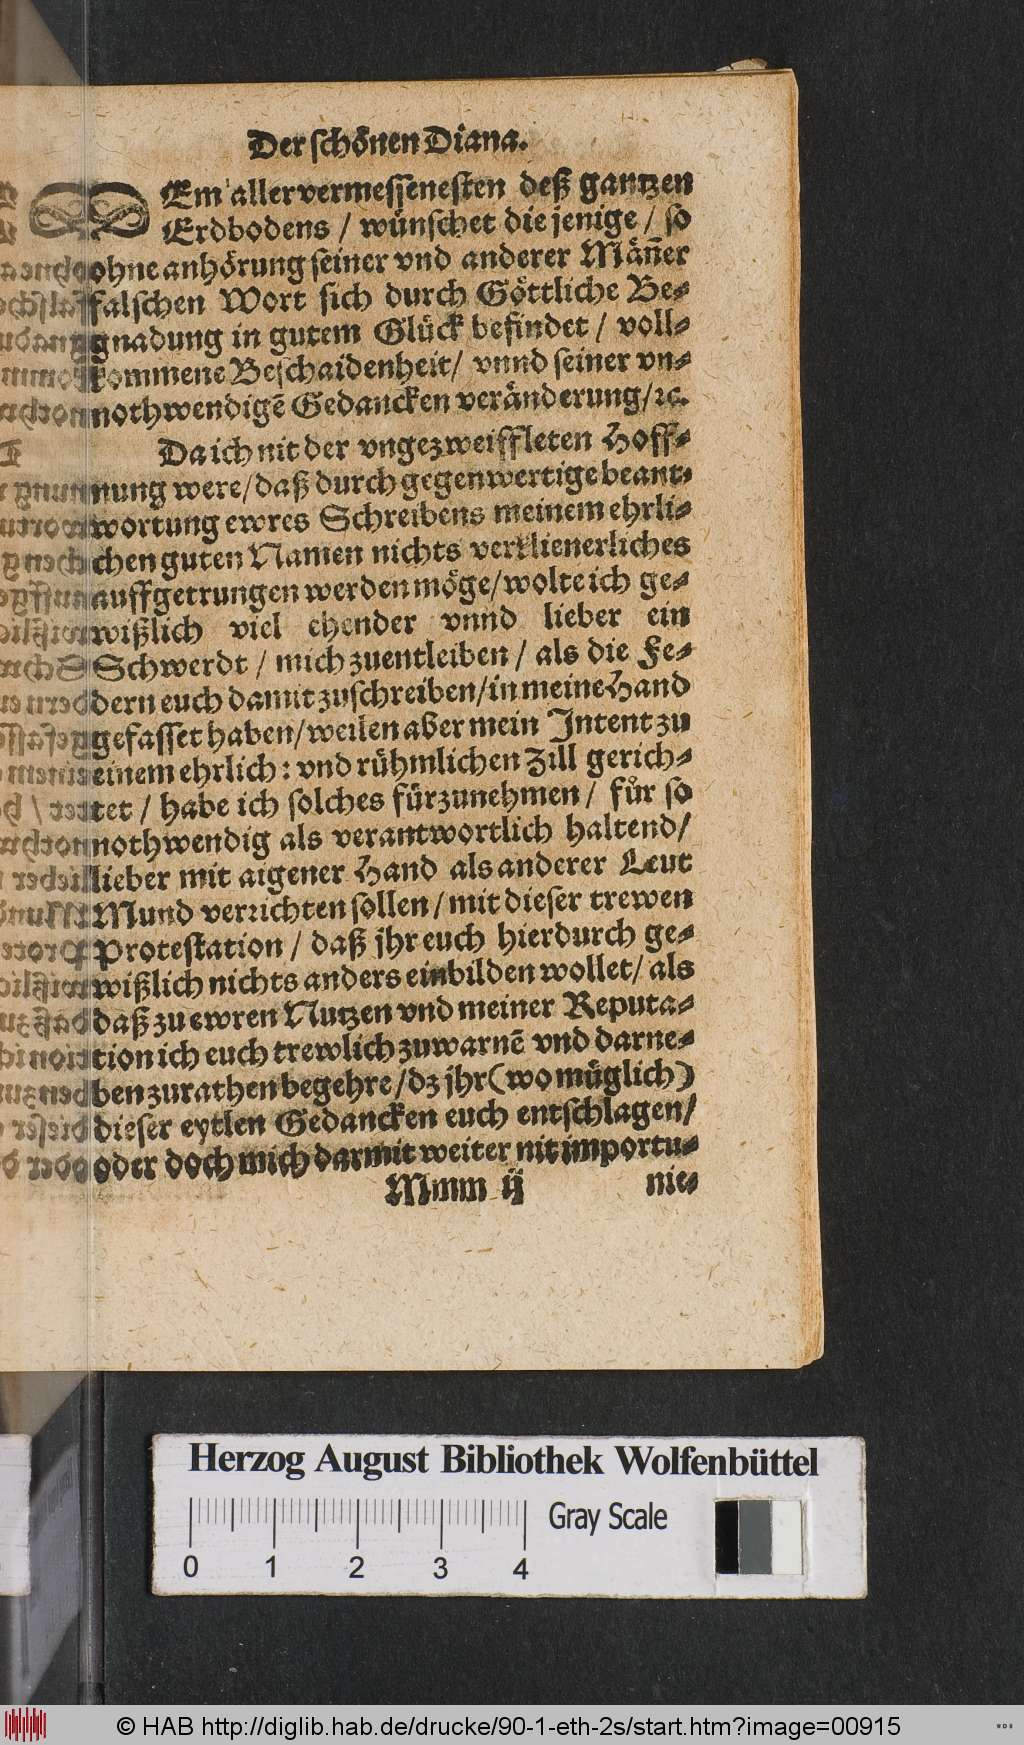 Der schönen Diana.
DEm allervermessenesten deß gantzen
Erdbodens / wünschet die jenige / so
ohne anhörung seiner vnd anderer Män̄er
falschen Wort sich durch Göttliche Be-
gnadung in gutem Glück befindet / voll-
kommene Beschaidenheit / vnnd seiner vn-
nothwendigē Gedancken veränderung / ꝛc.
Da ich nit der vngezweiffleten Hoff-
nung were / daß durch gegenwertige beant-
wortung ewres Schreibens meinem ehrli-
chen guten Namen nichts verklienerliches
auffgetrungen werden möge / wolte ich ge-
wißlich viel ehender vnnd lieber ein
Schwerdt / mich zuentleiben / als die Fe-
dern euch damit zuschreiben / in meine Hand
gefasset haben / weilen aber mein Intent zu
einem ehrlich: vnd rühmlichen Zill gerich-
tet / habe ich solches fürzunehmen / fuͤr so
nothwendig als verantwortlich haltend /
lieber mit aigener Hand als anderer Leut
Mund verrichten sollen / mit dieser trewen
Protestation / daß jhr euch hierdurch ge-
wißlich nichts anders einbilden wollet / als
daß zu ewren Nutzen vnd meiner Reputa-
tion ich euch trewlich zuwarnē vnd darne-
ben zurathen begehre / dz jhr (wo müglich)
dieser eytlen Gedancken euch entschlagen /
oder doch mich darmit weiter nit importu-
Mmm ij nie-
Herzog August Bibliothek Wolfenbüttel
0 1 2 3 4 Gray Scale
© HAB http://diglib.hab.de/drucke/90-1-eth-2s/start.htm?image=00915